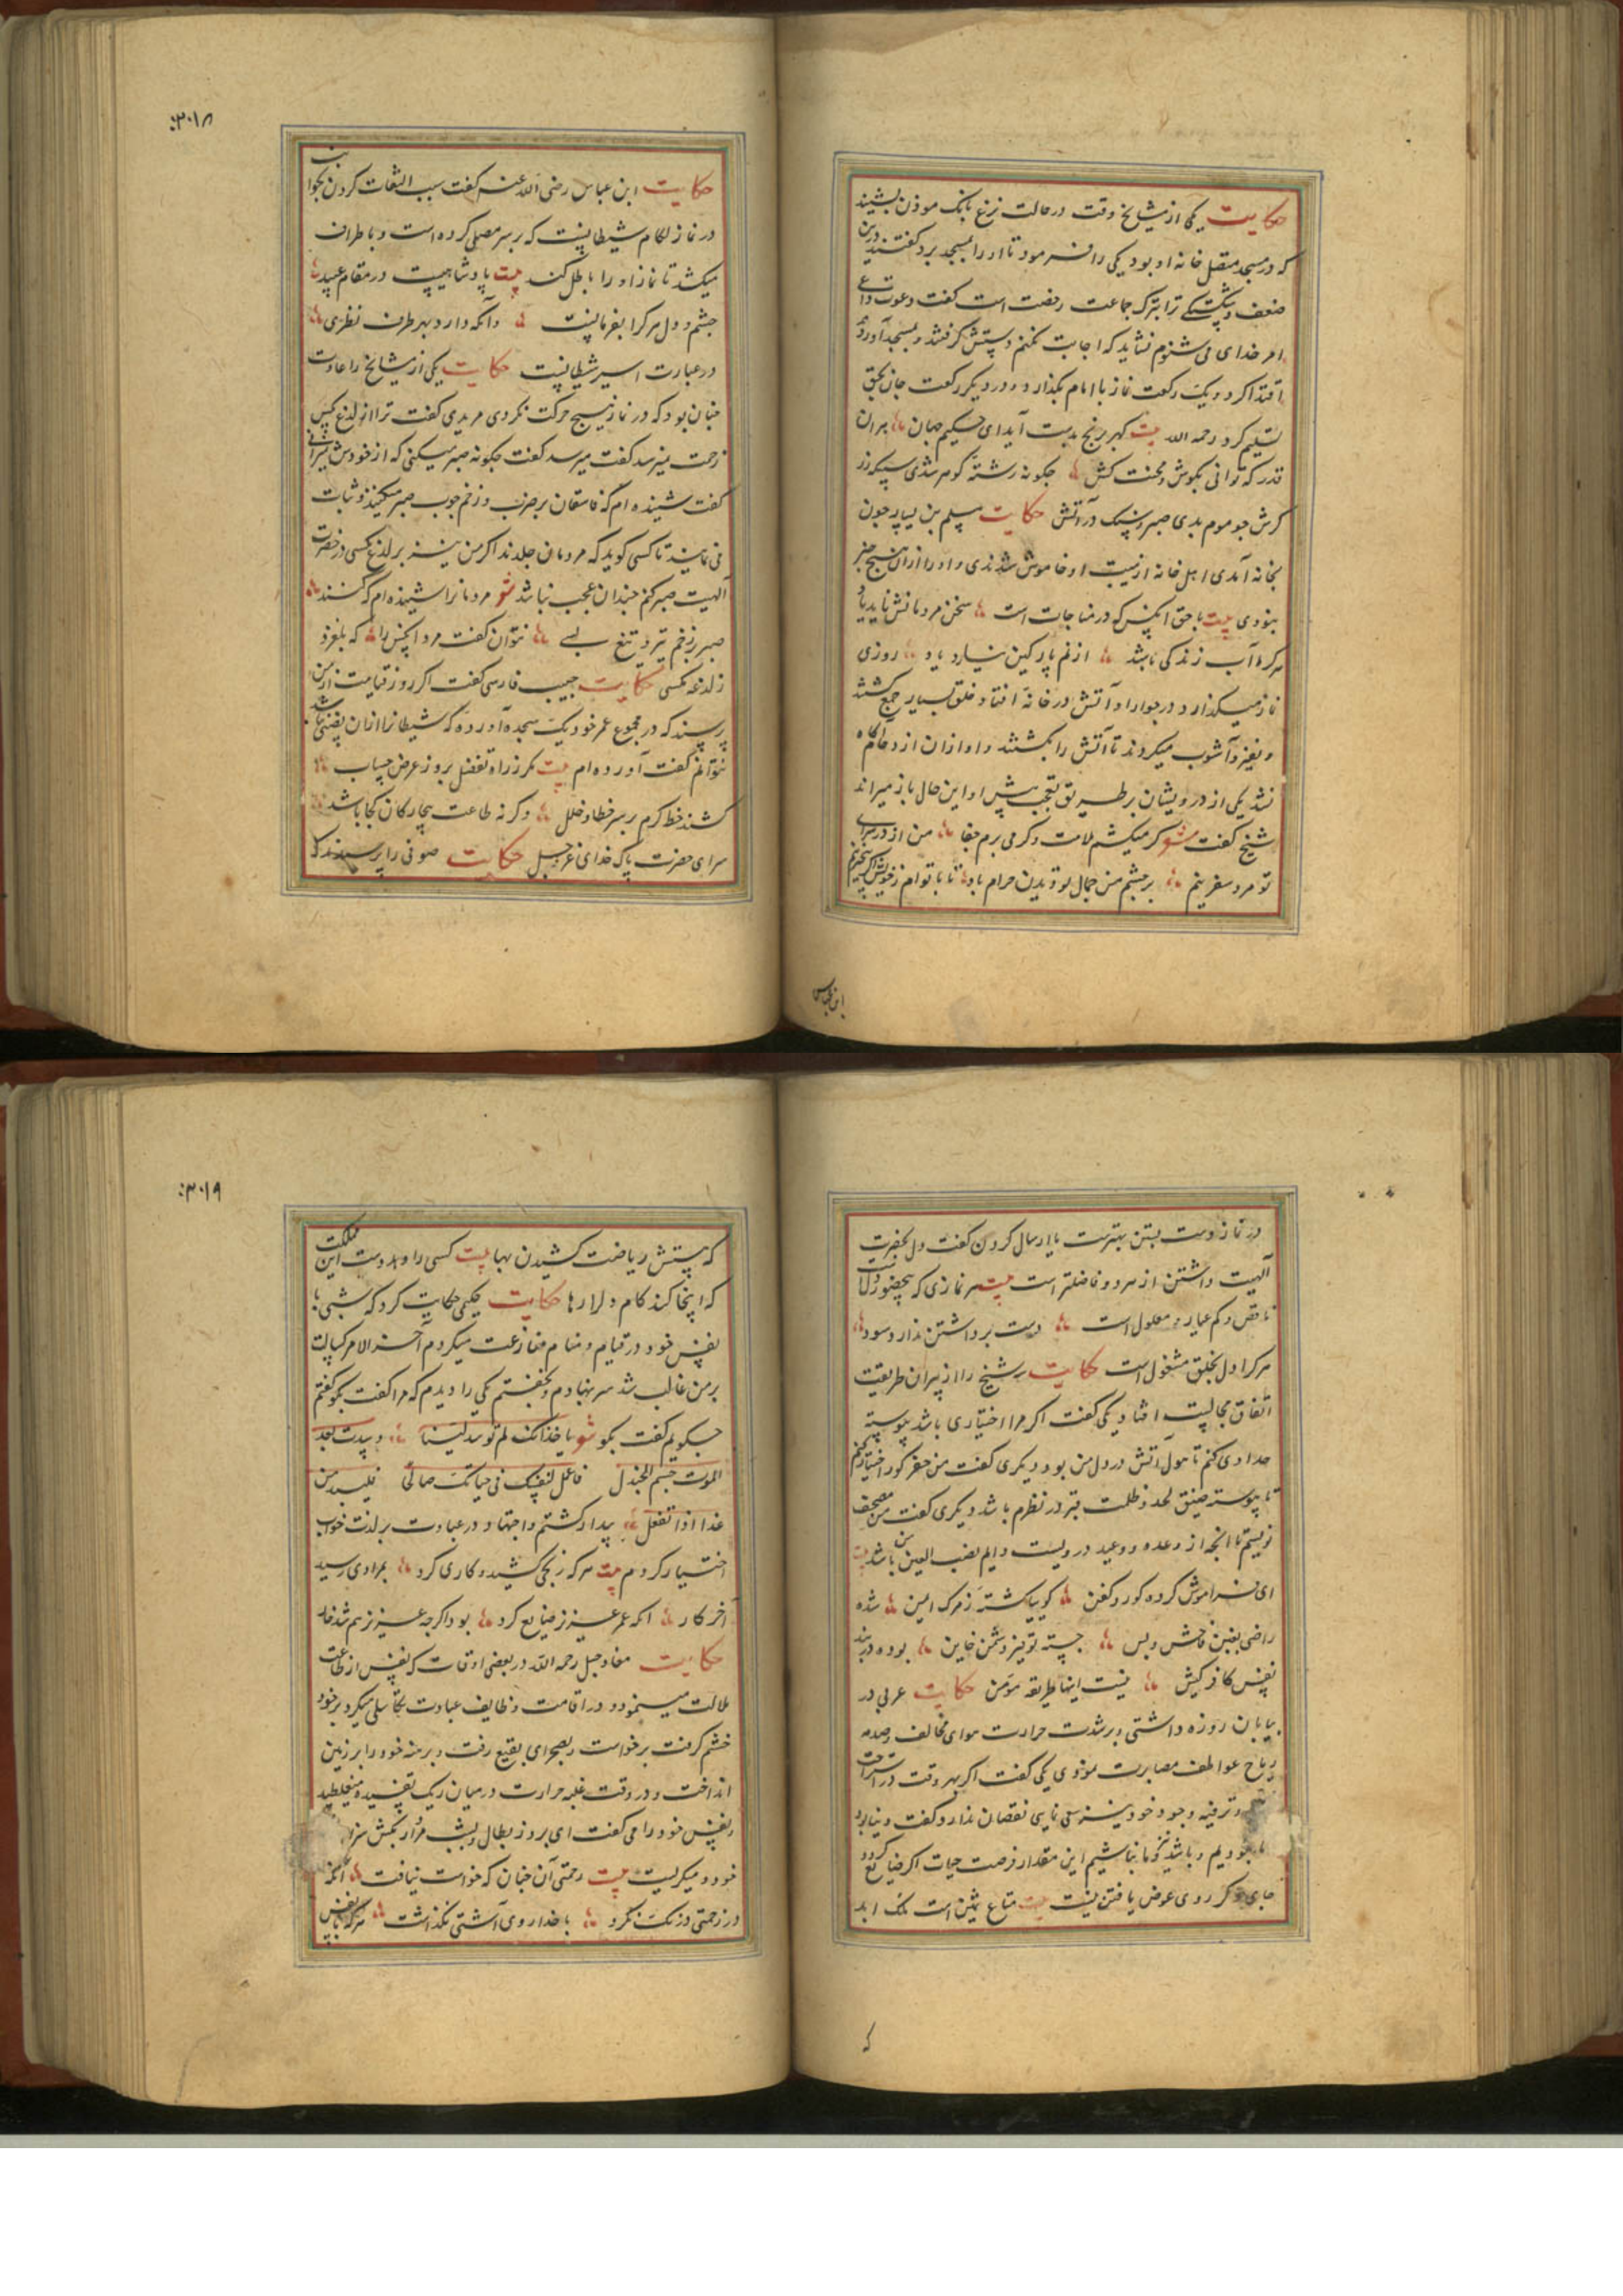 حکایت یکی از مشایخ وقت در حالت نزع بانک موذن بشنید
که در مسجد متصل خانه او بود یکی را فرمود تا او را بمسجد برد گفتند درین
ضعف و شکستگی ترا بترک جماعت رخصت است گفت دعوت داعی
امر خدای می شنوم نشاید که اجابت نکنم دستش گرفتند و بمسجد آوردند
اقتدا کرد و یک رکعت نماز با امام بگذارد و در دیگر رکعت جان بحق
تسلیم کرد رحمه الله بیت گهر برنج بدست آید ای حکیم جهان بران
قدر که توانی بکوش و محنت کش چگونه رشته گوهر شدی سپیکه زر
گرش چو موم بدی صبر و سنگ در آتش حکایت مسلم بن یسار چون
بخانه آمدی اهل خانه از هیبت او خاموش شدندی و او را از ان هیچ خبر
نبودی بیت با حق انکس که در مناجات است سخن مردمانش ناید یاد
هرکرا آب زندگی باشد از نم پارکین نیارد یاد روزی
نماز میکذارد در جوار او آتش در خانه افتاد و خلق بسیار جمع گشتند
و نفیر و آشوب میکردند تا آتش را بکشتند و او از ان ازدحام آگاه
نشد یکی از درویشان بر طریق تعجب پیش او این حال باز میراند
شیخ گفت شعر گر میکشم ملامت و گر می برم جفا من از در سرای
تو مرد سفر نیم بر چشم من جمال تو دیدن حرام باد تا با توام ز خویش اگر بیخبر نیم
ابن عباس
۲۰۱۸
حکایت ابن عباس رضی الله عنه گفت سبب التفات کردن بجوانب
در نماز لکام شیطانیست که بر سر مصلی کرده است و باطراف
میکشد تا نماز او را باطل کند بیت پادشاهیست در مقام عبید
چشم و دل هرکرا بفرمانست وانکه دارد بهر طرف نظری
در عبارت اسیر شیطانیست حکایت یکی از مشایخ را عادت
چنان بود که در نماز هیچ حرکت نکردی مریدی گفت ترا از لدغ مگس
زحمت میرسد گفت میرسد گفت چگونه صبر میکنی که از خودش نمیرانی
گفت شنیده ام که فاسقان بر ضرب و زخم چوب صبر میکنند و ثبات
می نمایند تا کسی کوید که مردمان جلدند اگر من نیز بر لدغ مگسی در حضرت
آلهیت صبر کنم چندان عجب نباشد شعر مردمانرا شنیده ام که کنند
صبر بر زخم تیر و تیغ بسی نتوان گفت مرد انکس را که بلغزد
ز لدغه مگسی حکایت حبیب فارسی گفت اگر روز قیامت از من
پرسند که در مجموع عمر خود یک سجده آورده که شیطانرا ازان نصیبی نباشد
نتوانم گفت آورده ام بیت مگر ز راه تفضل بروز عرض حساب
کشند خط کرم بر سر خطا و خلل وگرنه طاعت بیچارگان کجا باشد
سزای حضرت پاک خدای عز وجل حکایت صوفی را پرسیدند که
در نماز دست بستن بهترست یا ارسال کردن گفت دل بحضرت
آلهیت داشتن از هر دو فاضلتر است بیت هر نمازی که بیحضور دلست
ناقص و کم عیار و معلول است دست برداشتن ندارد سود
هرکرا دل بخلق مشغول است حکایت سه شیخ را از پیران طریقت
اتفاق مجالست افتاد یکی گفت اگر مرا اختیاری باشد پیوسته
حدادی کنم تا هول آتش در دل من بود دیگری گفت من حفر گور اختیار کنم
تا پیوسته ضیق لحد و ظلمت قبر در نظرم باشد دیگری گفت من مصحف
نویسم تا انچه از وعده و وعید دروست دایم نصب العین من باشد بیت
ای فراموش کرده گور و کفن گوییا گشته ز مرگ ایمن شده
راضی بغبن فاحش و بس چسته تو نیز دشمن خاین بوده در بند
نفس کافر کیش نیست اینها طریقه مؤمن حکایت عربی در
بیابان روزه داشتی و بر شدت حرارت هوای مخالف و صدمه
ریاح عواطف مصابرت نمودی یکی گفت اگر بهر وقت در استراحت
و ترفیه وجود خود نیز سعی نمایی نقصان ندارد گفت دنیا بود
ما نبودیم و باشد نیز و ما نباشیم این مقدار فرصت حیات اگر ضایع گردد
جای دیگر روی عوض یافتن نیست بیت متاع ثمین است ملک ابد
که
۲۰۱۹
که هستش ریاضت کشیدن بها بیت کسی را دهد دوست این مملکت
که اینجا کند کام دل را رها حکایت حکیمی حکایت کرد که شبی با
نفس خود در قیام و منام منازعت میکردم آخر الامر کسالت
بر من غالب شد سر بنهادم و بخفتم یکی را دیدم که مرا گفت بگو گفتم
چگویم گفت بگو شعر یا خدانک لم توسد لینا وسدت بعد
الموت صم الجندل فاعمل لنفسک فی حیاتک صالحا فلتندمن
غدا اذا تفعل بیدار گشتم و اجتهاد در عبادت بر لذت خواب
اختیار کردم بیت هرکه رنجی کشید و کاری کرد بمرادی رسید
آخر کار انکه عمر عزیز ضایع کرد بود اگرچه عزیز هم شد خوار
حکایت معاذ جبل رحمه الله در بعضی اوقات که نفس از طاعت
ملالت مینمود و در اقامت وظایف عبادت تکاسلی میکرد بر خود
خشم گرفت برخواست و بصحرای بقیع رفت و برهنه خود را بر زمین
انداخت و در وقت غلبه حرارت در میان ریک تفسیده میغلطید
و نفس خود را می گفت ای بروز بطال و بشب مردار بکش سزای
خود و میگریست بیت رحمتی آن چنان که خواست نیافت انکه
در زحمتی درنگ نکرد با خدا روی آشتی نگذاشت هرکه با نفس